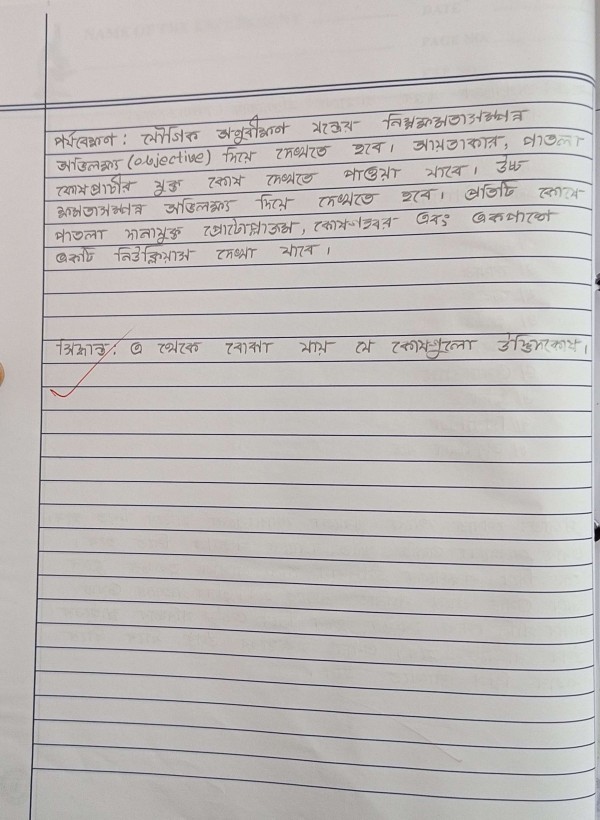 পর্যবেক্ষণ : যৌগিক অণুবীক্ষণ যন্ত্রের নিম্নক্ষমতাসম্পন্ন
অভিলক্ষ্য (objective) দিয়ে দেখতে হবে। আয়তাকার, পাতলা
কোষপ্রাচীর যুক্ত কোষ দেখতে পাওয়া যাবে। উচ্চ
ক্ষমতাসম্পন্ন অভিলক্ষ্য দিয়ে দেখতে হবে। প্রতিটি কোষে
পাতলা দানাযুক্ত প্রোটোপ্লাজম, কোষগহবর এবং একপাশে
একটি নিউক্লিয়াস দেখা যাবে।
সিদ্ধান্ত : এ থেকে বোঝা যায় যে কোষগুলো উদ্ভিদকোষ।